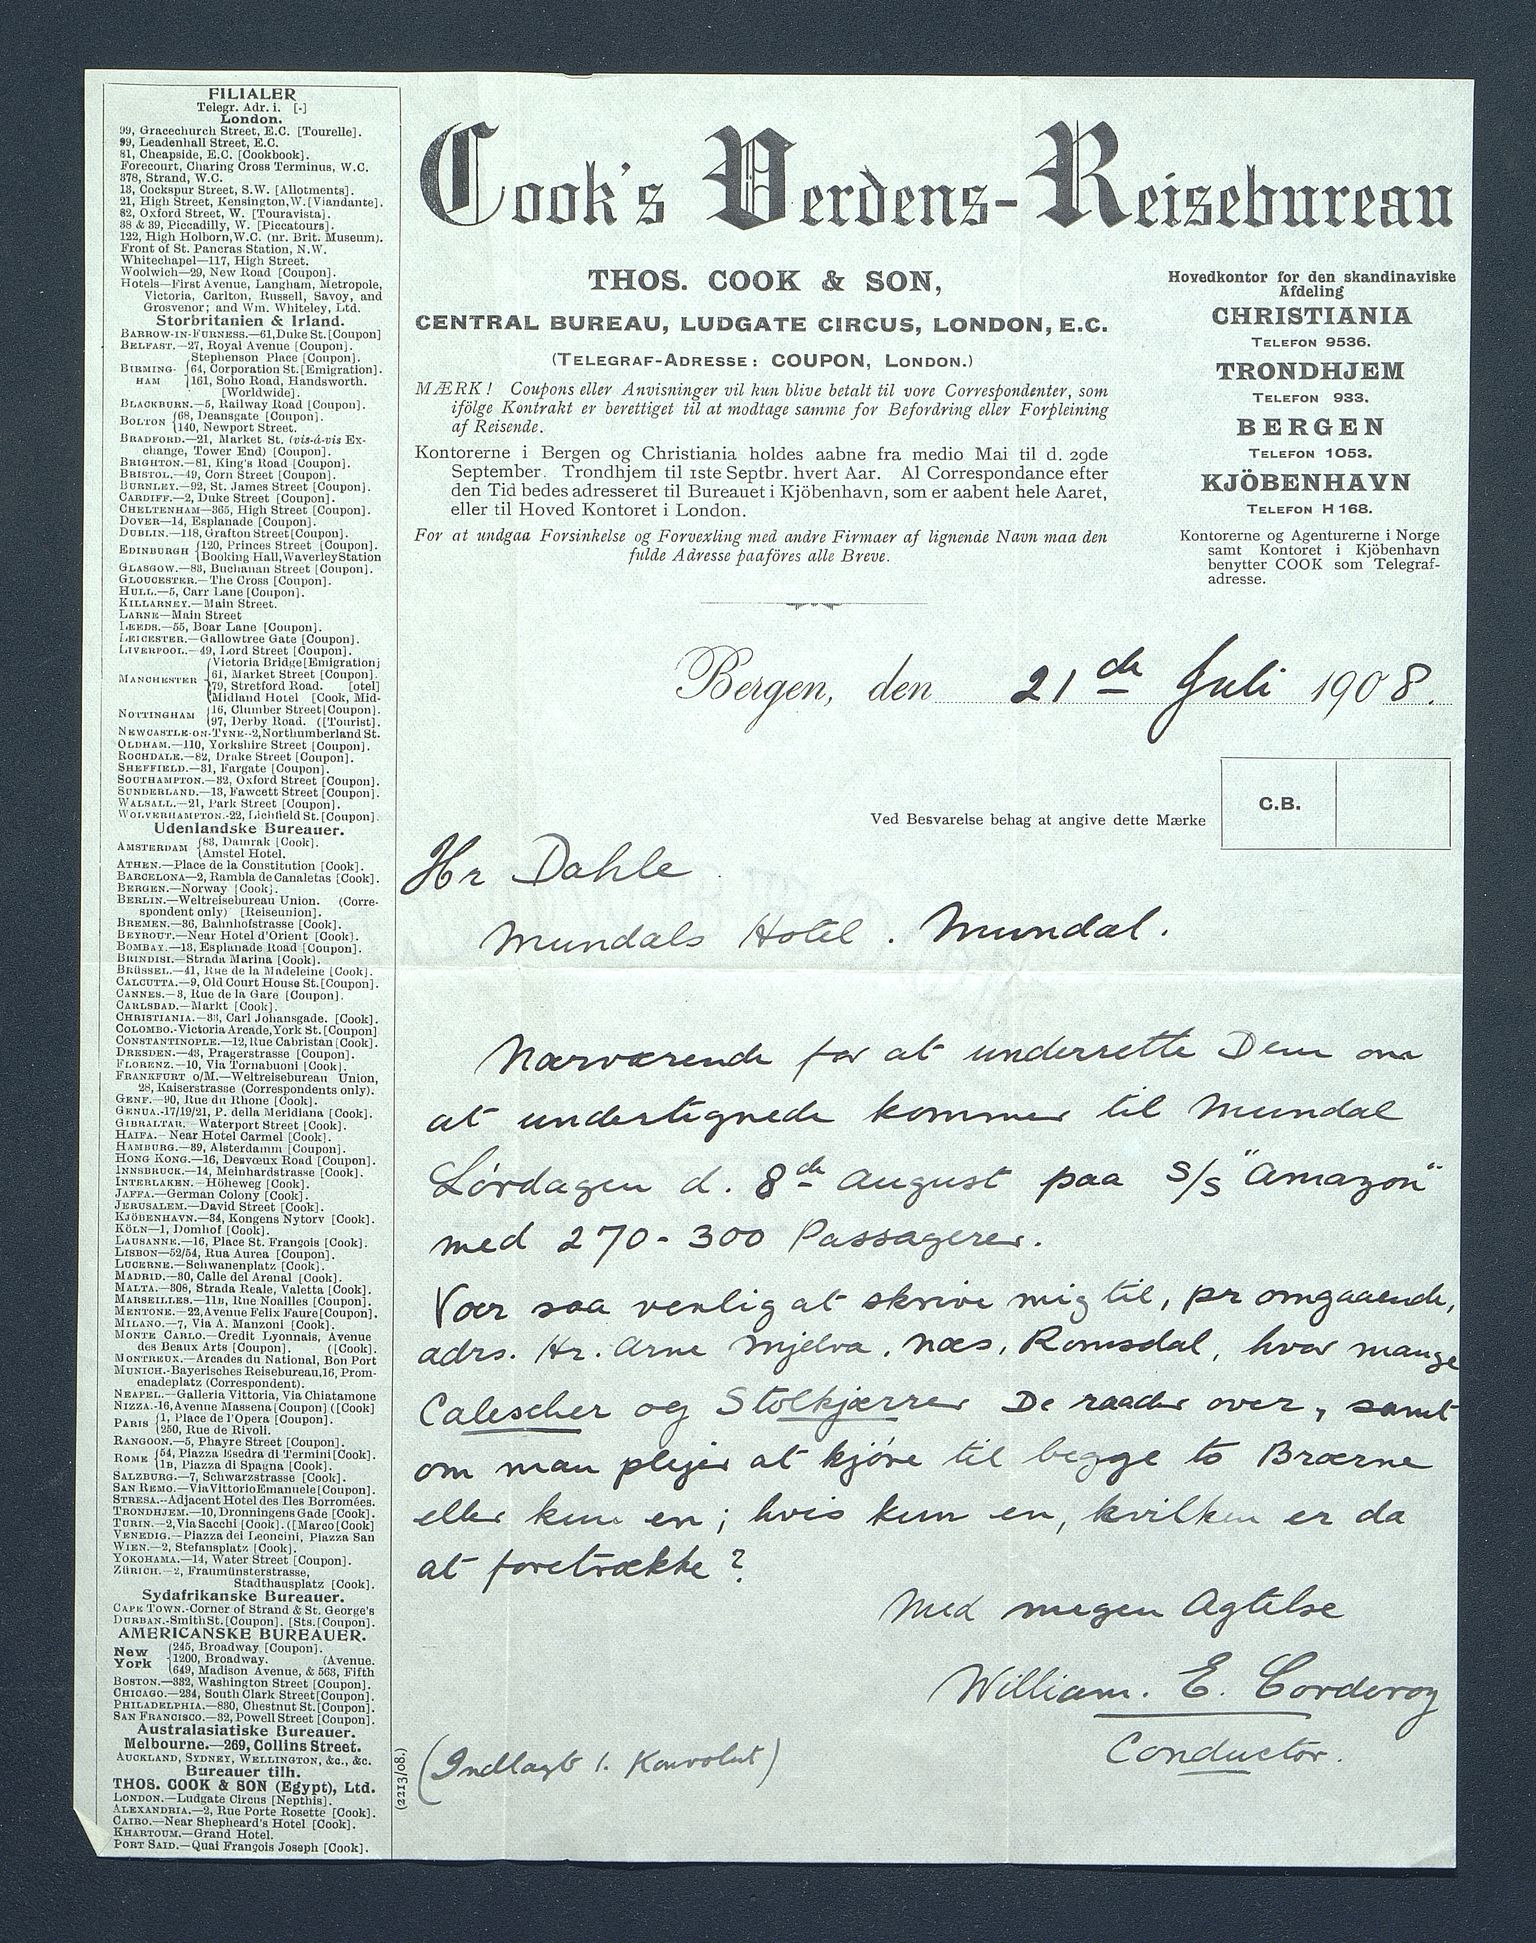 FILIALER
Telegr. Adr. i. [-]
London.
99, Gracechurch Street, E.C. [Tourelle].
99, Leadenhall Street, E.C.
81, Cheapside, E.C. [Cookbook].
Forecourt, Charing Cross Terminus, W.C.
378, Strand, W.C.
13, Cockspur Street, S.W. [Allotments].
21, High Street, Kensington, W. [Viandante].
82, Oxford Street, W. [Touravista].
38 & 39, Piccadilly, W. [Piccatours].
122, High Holborn, W.C. (nr. Brit. Museum).
Front of St. Pancras Station, N.W.
Whitechapel—117, High Street.
Woolwich—29, New Road [Coupon].
Hotels—First Avenue, Langham, Metropole,
Victoria, Carlton, Russell, Savoy, and
Grosvenor; and Wm. Whiteley, Ltd.
Storbritanien & Irland.
BARROW-IN-FURNESS.—61, Duke St. [Coupon]
BELFAST.—27, Royal Avenue [Coupon].
Stephenson Place [Coupon].
BIRMING- 64, Corporation St. [Emigration].
HAM 161, Soho Road, Handsworth.
[Worldwide].
BLACKBURN.—5, Railway Road [Coupon].
BOLTON 68, Deansgate [Coupon].
140, Newport Street.
BRADFORD.—21, Market St. (vis-à-vis Ex-
change, Tower End) [Coupon].
BRIGHTON.—81, King's Road [Coupon].
BRISTOL.—49, Corn Street [Coupon].
BURNLEY.—92, St. James Street [Coupon].
CARDIFF.—2, Duke Street [Coupon].
CHELTENHAM—365, High Street [Coupon].
DOVER—14, Esplanade [Coupon].
DUBLIN.—118, Grafton Street [Coupon].
EDINBURGH 120, Princes Street [Coupon].
Booking Hall, Waverley Station
GLASGOW.—83, Buchanan Street [Coupon].
GLOUCESTER.—The Cross [Coupon].
HULL.—5, Carr Lane [Coupon].
KILLARNEY.—Main Street.
LARNE—Main Street
LEEDS.—55, Boar Lane [Coupon].
LEICESTER.—Gallowtree Gate [Coupon].
LIVERPOOL.—49, Lord Street [Coupon].
Victoria Bridge [Emigration]
MANCHESTER 61, Market Street [Coupon].
79, Stretford Road. [otel]
Midland Hotel [Cook, Mid-
NOTTINGHAM 16, Clumber Street [Coupon].
97, Derby Road. ([Tourist].
NEWCASTLE-ON-TYNE—2, Northumberland St.
OLDHAM.—110, Yorkshire Street [Coupon].
ROCHDALE.—82, Drake Street [Coupon].
SHEFFIELD.—31, Fargate [Coupon].
SOUTHAMPTON.—32, Oxford Street [Coupon].
SUNDERLAND.—13, Fawcett Street [Coupon].
WALSALL.—21, Park Street [Coupon].
WOLVERHAMPTON.-22, Lichfield St. [Coupon].
Udenlandske Bureauer.
AMSTERDAM 83, Damrak [Cook].
Amstel Hotel.
ATHEN.—Place de la Constitution [Cook].
BARCELONA—2, Rambla de Canaletas [Cook].
BERGEN.—Norway [Cook].
BERLIN.—Weltreisebureau Union. (Corre-
spondent only) [Reiseunion].
BREMEN.—36, Bahnhofstrasse [Cook].
BEYROUT.—Near Hotel d'Orient [Cook].
BOMBAY.—13, Esplanade Road [Coupon].
BRINDISI.—Strada Marina [Cook].
BRÜSSEL.—41, Rue de la Madeleine [Cook].
CALCUTTA.—9, Old Court House St. [Coupon].
CANNES.—3, Rue de la Gare [Coupon].
CARLSBAD.—Markt [Cook].
CHRISTIANIA.—33, Carl Johansgade. [Cook].
COLOMBO.-Victoria Arcade, York St. [Coupon]
CONSTANTINOPLE.—12, Rue Cabristan [Cook].
DRESDEN.—43, Pragerstrasse [Coupon].
FLORENZ.—10, Via Tornabuoni [Cook].
FRANKFURT o/M.—Weltreisebureau Union,
28, Kaiserstrasse (Correspondents only).
GENF.—90, Rue du Rhone [Cook].
GENUA.-17/19/21, P. della Meridiana [Cook].
GIBRALTAR.—Waterport Street [Cook].
HAIFA.—Near Hotel Carmel [Cook].
HAMBURG.—39, Alsterdamm [Coupon].
HONG KONG.—16, Desvœux Road [Coupon].
INNSBRUCK.—14, Meinhardstrasse [Cook].
INTERLAKEN.—Höheweg [Cook].
JAFFA.—German Colony [Cook].
JERUSALEM.—David Street [Cook].
KJÖBENHAVN.—34, Kongens Nytorv [Cook].
KÖLN—1, Domhof [Cook].
LAUSANNE.—16, Place St. François [Cook].
LISBON—52/54, Rua Aurea [Coupon].
LUCERNE.—Schwanenplatz [Cook].
MADRID.—30, Calle del Arenal [Cook].
MALTA.—308, Strada Reale, Valetta [Cook].
MARSEILLES.—11B, Rue Noailles [Coupon].
MENTONE.—22, Avenue Felix Faure [Coupon].
MILANO.—7, Via A. Manzoni [Cook].
MONTE CARLO.—Credit Lyonnais, Avenue
des Beaux Arts [Coupon]. ([Cook].
MONTREUX.—Arcades du National, Bon Port
MUNICH.-Bayerisches Reisebureau, 16, Prom-
enadeplatz (Correspondent).
NEAPEL.—Galleria Vittoria, Via Chiatamone
NIZZA.-16, Avenue Massena [Coupon] ([Cook]
PARIS 1, Place de l'Opera [Coupon].
250, Rue de Rivoli.
RANGOON.—5, Phayre Street [Coupon].
ROME 54, Piazza Esedra di Termini [Cook].
1B, Piazza di Spagna [Cook].
SALZBURG.—7, Schwarzstrasse [Cook].
SAN REMO.—Via Vittorio Emanuele [Coupon].
STRESA.—Adjacent Hotel des Iles Borromées.
TRONDHJEM.—10, Dronningens Gade [Cook].
TURIN.—2, Via Sacchi [Cook]. ([Marco [Cook]
VENEDIG.—Piazza dei Leoncini, Piazza San
WIEN.—2, Stefansplatz [Cook].
YOKOHAMA.—14, Water Street [Coupon].
ZÜRICH.—2, Fraumünsterstrasse,
Stadthausplatz [Cook].
Sydafrikanske Bureauer.
CAPE TOWN.-Corner of Strand & St. George's
DURBAN.-Smith St. [Coupon]. [Sts. [Coupon].
AMERICANSKE BUREAUER.
New York 245, Broadway [Coupon].
1200, Broadway. (Avenue.
649, Madison Avenue, & 563, Fifth
BOSTON.—332, Washington Street [Coupon].
CHICAGO.—234, South Clark Street [Coupon].
PHILADELPHIA.—830, Chestnut St. [Coupon].
SAN FRANCISCO.—32, Powell Street [Coupon].
Australasiatiske Bureauer.
Melbourne.—269, Collins Street.
AUCKLAND, SYDNEY, WELLINGTON, &c., &c.
Bureauer tilh.
THOS. COOK & SON (Egypt), Ltd.
LONDON.—Ludgate Circus [Nepthis].
ALEXANDRIA.—2, Rue Porte Rosette [Cook].
CAIRO.—Near Shepheard's Hotel [Cook].
KHARTOUM.—Grand Hotel.
PORT SAID.—Quai François Joseph [Cook].
(2213/08.)
Cook's Verdens-Reisebureau
THOS. COOK & SON,
CENTRAL BUREAU, LUDGATE CIRCUS, LONDON, E.C.
(TELEGRAF-ADRESSE: COUPON, LONDON.)
MÆRK! Coupons eller Anvisninger vil kun blive betalt til vore Correspondenter, som
ifölge Kontrakt er berettiget til at modtage samme for Befordring eller Forpleining
af Reisende.
Kontorerne i Bergen og Christiania holdes aabne fra medio Mai til d. 29de
September. Trondhjem til 1ste Septbr. hvert Aar. Al Correspondance efter
den Tid bedes adresseret til Bureauet i Kjöbenhavn, som er aabent hele Aaret,
eller til Hoved Kontoret i London.
For at undgaa Forsinkelse og Forvexling med andre Firmaer af lignende Navn maa den
fulde Adresse paaföres alle Breve.
Hovedkontor for den skandinaviske
Afdeling
CHRISTIANIA
TELEFON 9536.
TRONDHJEM
TELEFON 933.
BERGEN
TELEFON 1053.
KJÖBENHAVN
TELEFON H 168.
Kontorerne og Agenturerne i Norge
samt Kontoret i Kjöbenhavn
benytter COOK som Telegraf-
adresse.
Bergen, den 21de Juli 1908.
Ved Besvarelse behag at angive dette Mærke
C.B.
Hr Dahle
Mundals Hotel. Mundal.
Nærværende for at underrette Dem om
at undertegnede kommer til Mundal
Lørdagen d. 8de August paa S/S "Amazon"
med 270-300 Passagerer.
Vær saa venlig at skrive mig til, pr omgaaende,
adrs. Hr. Arne Mjelva. Næs, Romsdal, hvor mange
Calescher og Stolkjærrer De raader over, samt
om man plejer at kjøre til begge to Bræerne
eller kun en; hvis kun en, hvilken er da
at foretrække?
Med megen Agtelse
William. E. Corderoy
Conductor.
(Indlagt 1. Konvolut)